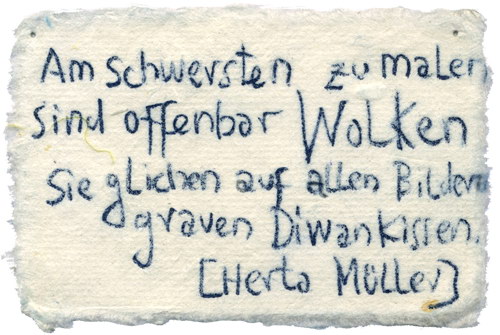 Am schwersten zu malen
sind offenbar Wolken
Sie glichen auf allen Bildern
grauen Diwankissen.
[Herta Müller]